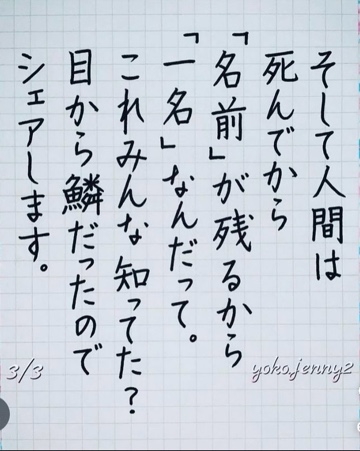 そして人間は
死んでから
「名前」が残るから
「一名」なんだって。
これみんな知ってた？
目から鱗だったので
シェアします。
3/3
yoko.jenny2